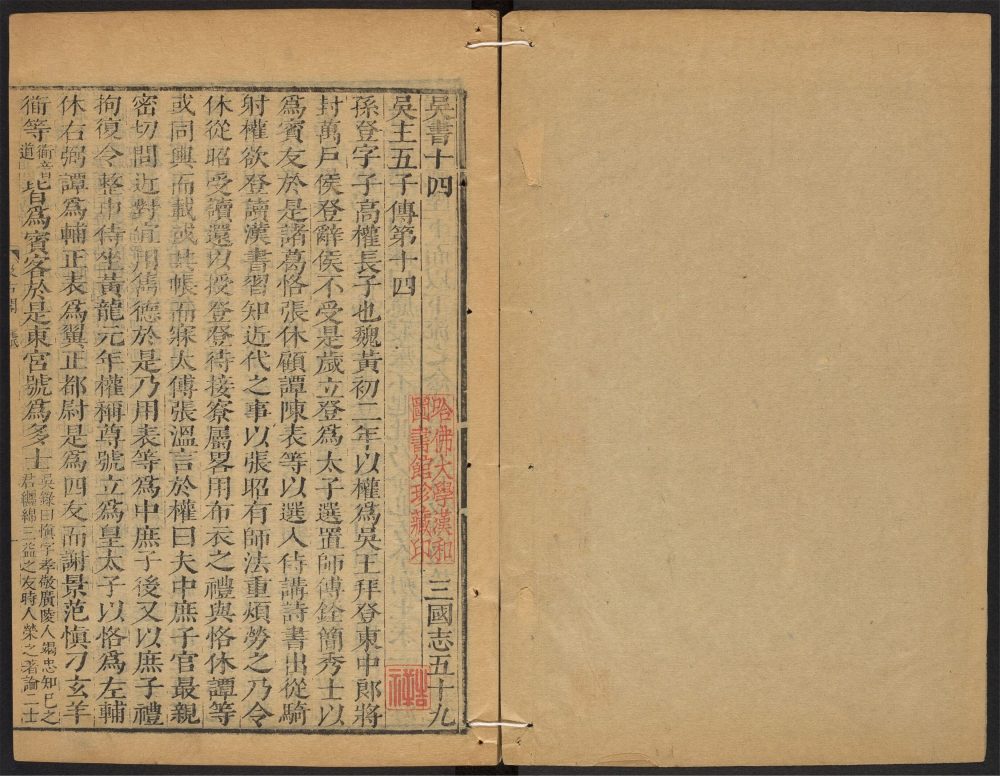 吳書十四
三國志五十九
哈佛大學漢和
圖書館珍藏印
吳主五子傳第十四
孫登字子高權長子也魏黃初二年以權爲吳王拜登東中郎將
封萬戶侯登辭侯不受是歲立登爲太子選置師傅銓簡秀士以
爲賓友於是諸葛恪張休顧譚陳表等以選入侍講詩書出從騎
射權欲登讀漢書習知近代之事以張昭有師法重煩勞之乃令
休從昭受讀還以授登登待接寮屬畧用布衣之禮與恪休譚等
或同輿而載或共帳而寐太傅張溫言於權曰夫中庶子官最親
密切問近對宜用雋德於是乃用表等爲中庶子後又以庶子禮
拘復令整巾侍坐黃龍元年權稱尊號立爲皇太子以恪爲左輔
休右弼譚爲輔正表爲翼正都尉是爲四友而謝景范愼刁玄羊
衜等衜音道皆爲賓客於是東宮號爲多士吳錄曰愼字孝敬廣陵人竭忠知已之君纏綿三益之友時人榮之著論二十